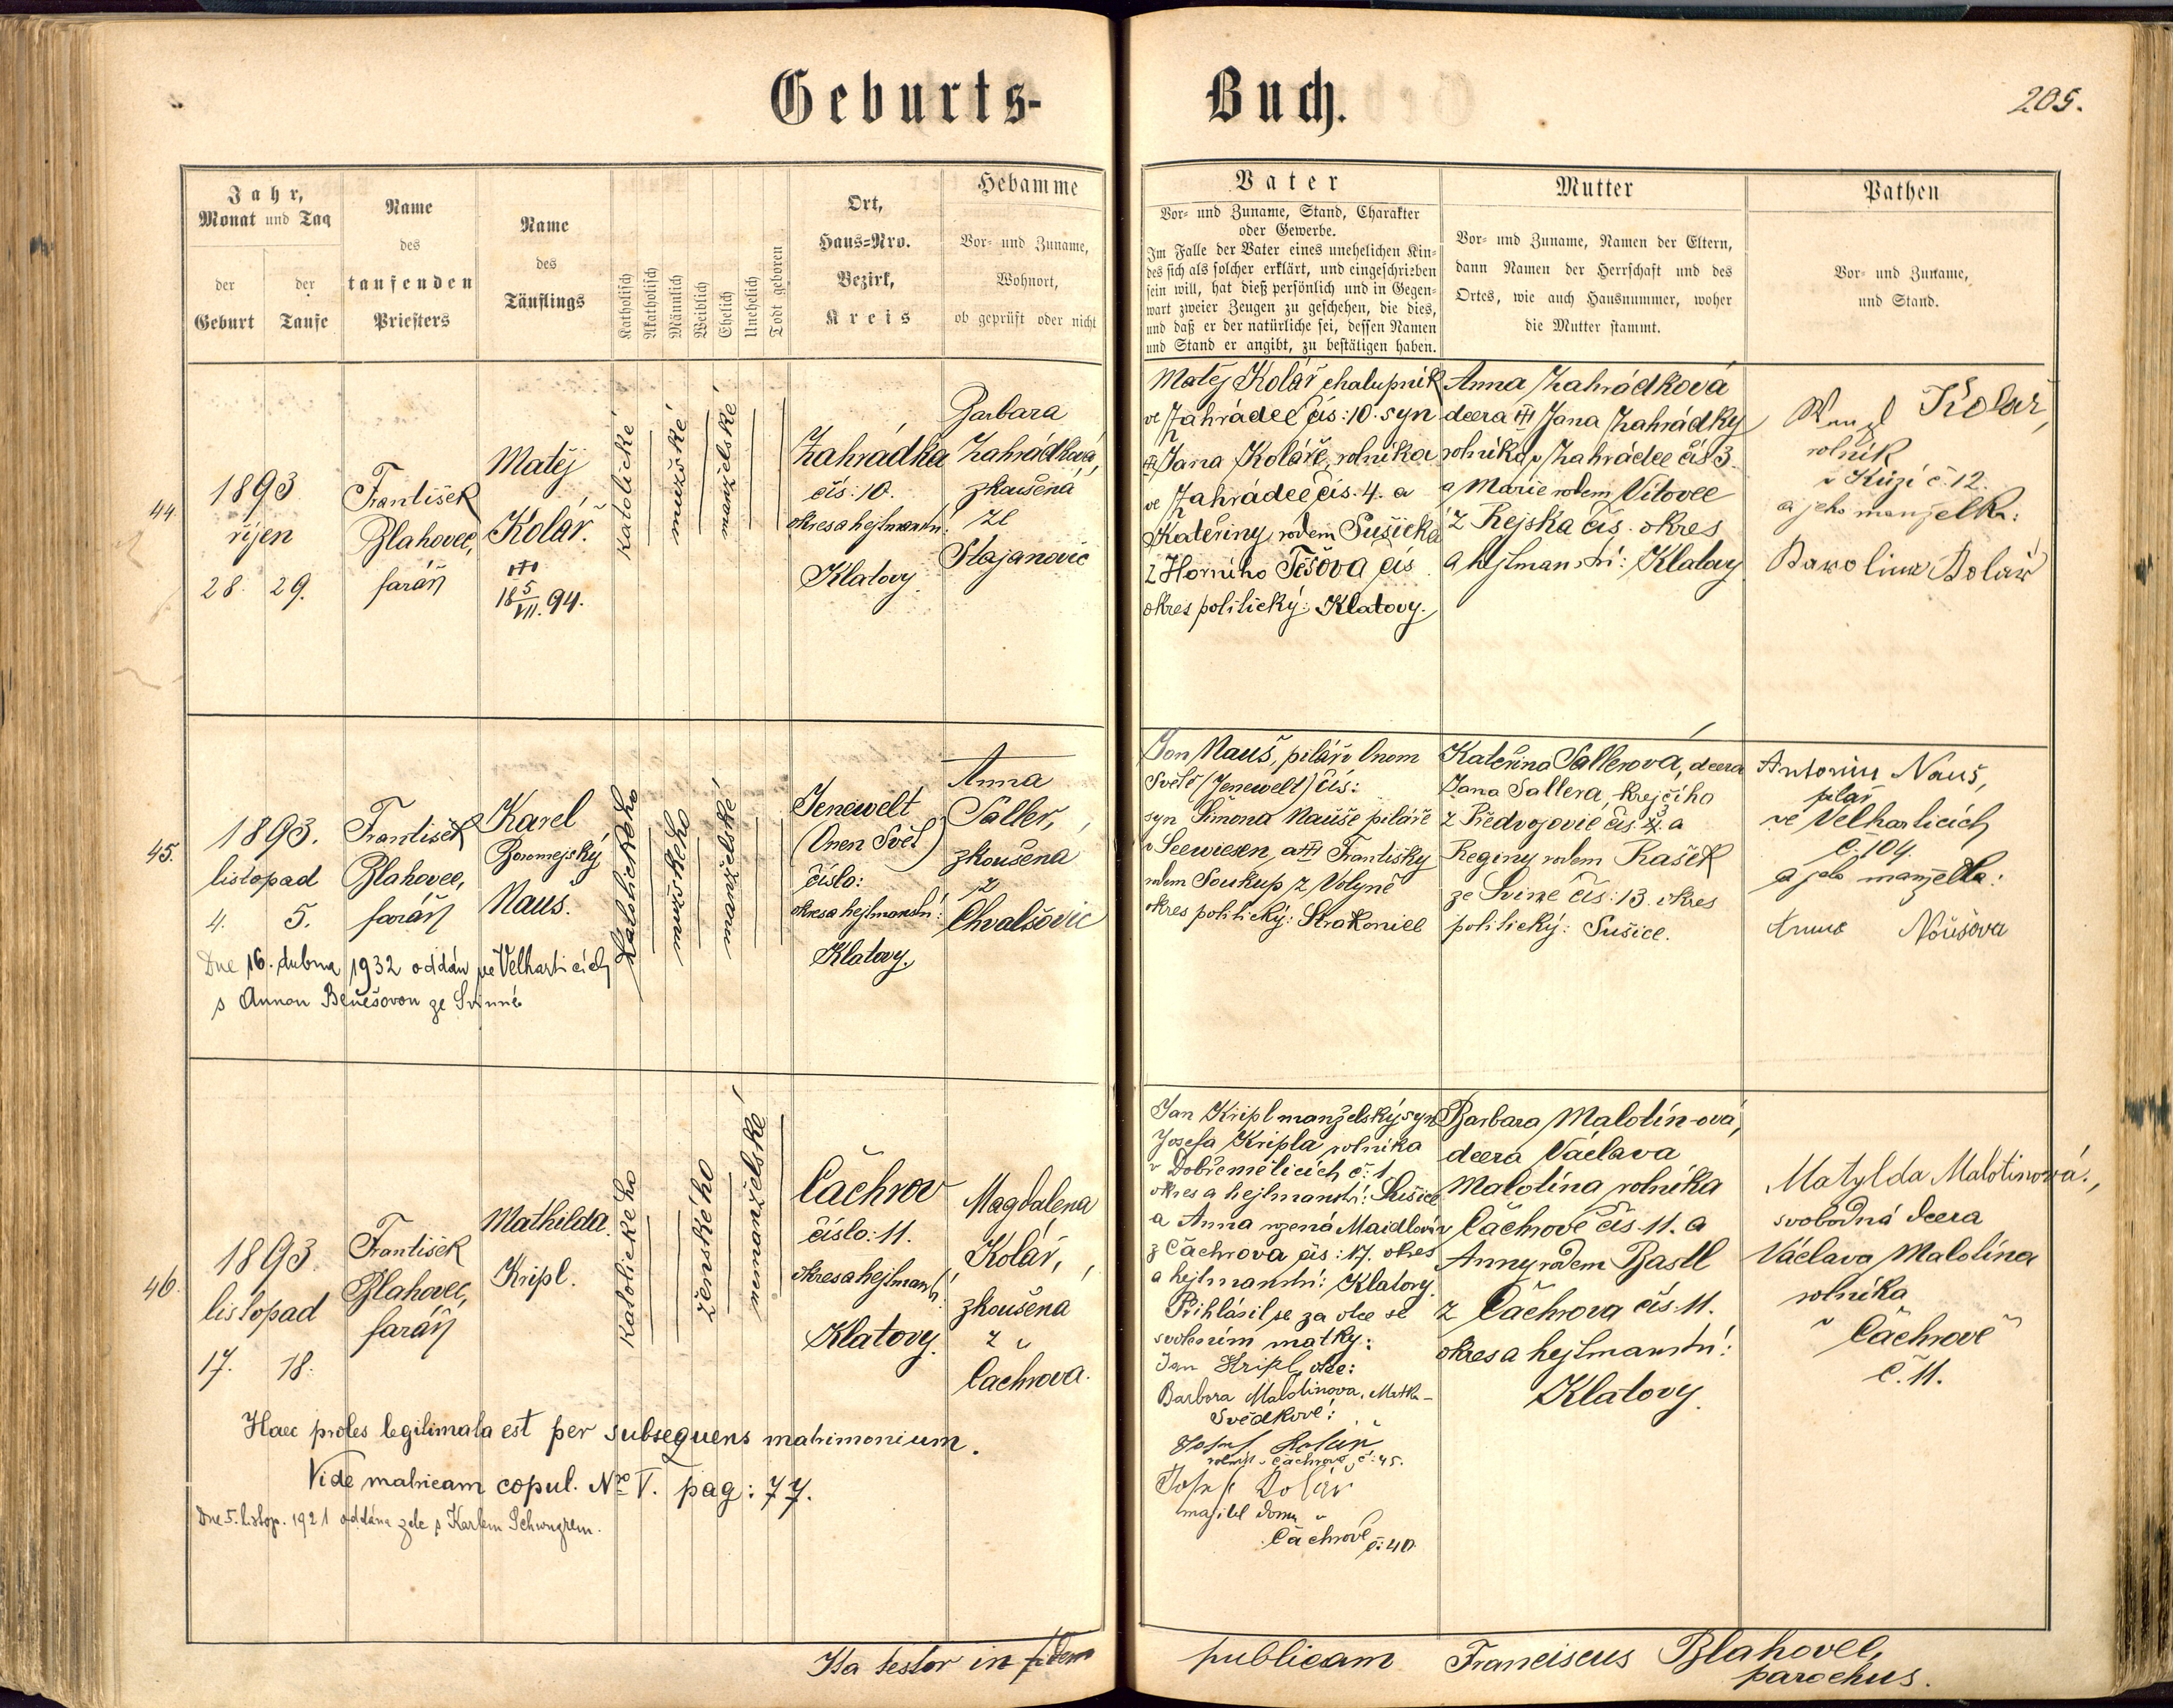 Geburts-
Buch.
205.
Jahr,
Monat und Tag
der
Geburt
der
Taufe
Name
des
taufenden
Priesters
Name
des
Täuflings
Katholisch
Akatholisch
Männlich
Weiblich
Ehelich
Unehelich
Todt geboren
Ort,
Haus-Nro.
Bezirk,
Kreis
Hebamme
Vor- und Zuname,
Wohnort,
ob geprüft oder nicht
Vater
Vor- und Zuname, Stand, Charakter
oder Gewerbe.
Im Falle der Vater eines unehelichen Kin-
des sich als solcher erklärt, und eingeschrieben
sein will, hat dieß persönlich und in Gegen-
wart zweier Zeugen zu geschehen, die dies,
und daß er der natürliche sei, dessen Namen
und Stand er angibt, zu bestätigen haben.
Mutter
Vor- und Zuname, Namen der Eltern,
dann Namen der Herrschaft und des
Ortes, wie auch Hausnummer, woher
die Mutter stammt.
Pathen
Vor- und Zuname,
und Stand.
44
1893
říjen
28. 29.
František
Blahovec,
farář
Matěj
Kolář.
18 5/VII. 94.
katolické
mužské
manželské
Zahrádka
čís: 10.
okres a hejtmanstv:
Klatovy.
Barbara
Zahrádková,
zkoušená
ze
Stajanovic
Matěj Kolář chalupník
ve Zahrádce čís: 10. syn
Jana Koláře, rolníka
ve Zahrádce čís. 4. a
Kateřiny rodem Sušická
z Horního Těšova čís
okres politický: Klatovy.
Anna Zahrádková
dcera Jana Zahrádky
rolníka v Zahrádce čís 3.
a Marie rodem Vítovec
z Kejska čís. okres
a hejtmanství: Klatovy
Kolář,
rolník
v č. 12.
a jeho manželka:
Karolina Kolář
45.
1893.
listopad
4. 5.
František
Blahovec,
farář
Karel
Boromejský
Nauš.
katolického
mužského
manželské
Jenewelt
(Onen Svět)
číslo:
okres a hejtmanstv:
Klatovy.
Anna
Saller,
zkoušená
z
Chvalšovic
Dne 16. dubna 1932 oddán ve Velharticích
s Annou Benešovou ze Svinné
Jan Nauš, pilář v Onom
Světě (Jenewelt) čís:
syn Šimona Nauše piláře
v Seewiesen, a Františky
rodem Soukup z Volyně
okres politický: Strakonice
Kateřina Sallerová, dcera
Jana Sallera, krejčího
z Předvojovic čís. a
Reginy rodem Rašek
ze Svine čís: 13. okres
politický: Sušice.
Antonín Nauš,
pilař
ve Velharticích
č. 104.
a jeho manželka:
Anna Noušova
46.
1893.
listopad
17. 18.
František
Blahovec,
farář
Mathilda
Kripl.
katolického
ženského
nemanželské
Čachrov
číslo: 11.
okres a hejtmanst:
Klatovy.
Magdalena
Kolář,
zkoušená
z
Čachrova.
Haec proles legitimata est per subsequens matrimonium.
Vide matricam copul. Nro V. pag: 77.
Dne 5. listop. 1921 oddána zde s Karlem Schwugrem.
Jan Kripl manželský syn
Josefa Kripla rolníka
v Dobřeměticích č: 1
okres a hejtmanství: Sušice
a Anna rozená Maidlová
z Čachrova čís: 17. okres
a hejtmanství: Klatovy.
Přihlásil se za otce se
svolením matky:
Jan Kripl, otec:
Barbora Malotinova, Matka
Svědkové:
Josef Kolář
rolník v Čachrově č: 45.
Josef Kolář
majitel domu v
Čachrově č: 40.
Barbara Malotín-ová,
dcera Václava
Malotína rolníka
v Čachrově čís. 11. a
Anny rodem Bastl
z Čachrova čís. 11.
okres a hejtmanství:
Klatovy.
Matylda Malotinová,
svobodná dcera
Václava Malotína
rolníka
v Čachrově
č. 11.
Ita testor in fidem
publicam Franciscus Blahovec,
parochus.